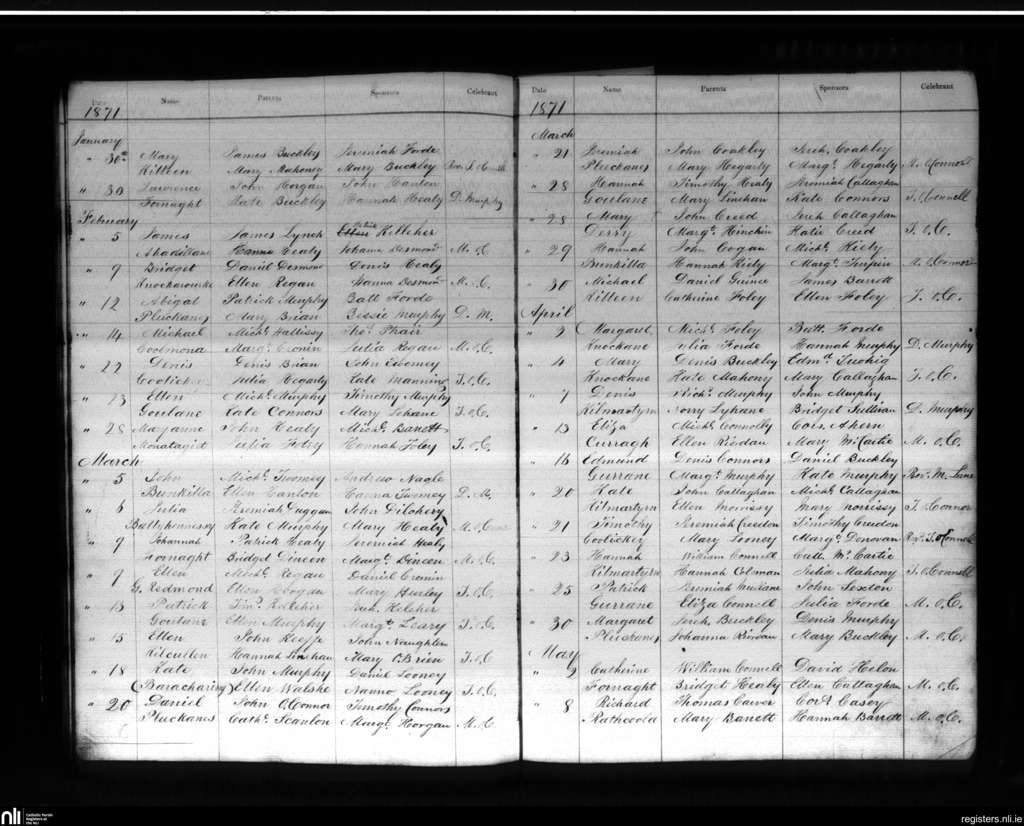 Date Name Parents Sponsors Celebrant
1871
January
" 30th Mary James Buckley Jeremiah Forde
Killeen Mary Mahoney Mary Buckley
" 30 Lawrence John Horgan John Hanlon
Fornaght Kate Buckley Hannah Healy D. Murphy
February
" 5 James James Lynch Kelleher
Healy Johanna Desmond M. O.C.
" 9 Bridget Daniel Desmond Denis Healy
Knockanowke Ellen Regan Hanna Desmond M. O.C.
" 12 Abigal Patrick Murphy Batt Forde
Pluckanes Mary Brian Bessie Murphy D. M.
" 14 Michael Michl. Hallissy Thos. Phair
Coolmona Margt. Cronin Julia Regan M. O.C.
" 22 Denis Denis Brian John Twomey
Julia Hegarty Kate Manning T. O.C.
" 23 Ellen Michl. Murphy Timothy Murphy
Goulane Kate Connors Mary Lehane T. O.C.
" 28 Mayanne John Healy Michl. Barrett
Monatagist Julia Foley Hannah Foley T. O.C.
March
" 5 John Michl. Twomey Andrew Nagle
Bunkilla Ellen Canton Hanna Twomey D. M.
" 6 Julia Jeremiah Duggan John Dilohery
Ballyhennessy Kate Murphy Mary Healy
" 9 Johannah Patrick Healy Jeremiah Healy
Fornaght Bridget Dineen Margt. Dineen M. O.C.
" 9 Ellen Michl. Regan Daniel Cronin
G. Redmond Ellen Cogan Mary Hurley T. O.C.
" 13 Patrick Timy. Kelleher
Goulane Ellen Murphy Margt. Leary T. O.C.
" 15 Ellen John Keeffe John Naughten
Kilcullen Hannah Linehan Mary O'Brien T. O.C
" 18 Kate John Murphy Daniel Looney
Baracharing Ellen Walshe Nanno Looney T. O.C.
" 20 Daniel John O'Connor Timothy Connors
Pluckanes Cathe. Scanlon Margt. Horgan
Date Name Parents Sponsors Celebrant
1871
March
" 21 Jeremiah John Coakley Jerh. Coakley
Pluckanes Mary Hegarty Margt. Hegarty M. O'Connor
" 28 Hannah Timothy Healy Jeremiah Callaghan
Goulane Mary Linehan Kate Connors T. O'Connell
" 28 Mary John Creed Jerh. Callaghan
Derry Margt. Hinchin Katie Creed T. O.C.
" 29 Hannah John Cogan Michl. Kiely
Bunkilla Hannah Kiely Margt. M. O'Connor
" 30 Michael Daniel Guinee James Barrett
Killeen Catherine Foley Ellen Foley T. O.C.
April
" 2 Margaret Michl. Foley Batt. Forde
Knockane Julia Forde Hannah Murphy D. Murphy
" 4 Mary Denis Buckley Edmd. Twohig
Knockane Kate Mahony Mary Callaghan T. O.C.
" 7 Denis Richd. Murphy John Murphy
Kilmartyrn Norry Lyhane Bridget Sullivan D. Murphy
" 13 Eliza Michl. Connolly Cors. Ahern
Curragh Ellen Riordan Mary McCartie M. O.C.
" 16 Edmund Denis Connors Daniel Buckley
Gurrane Margt. Murphy Kate Murphy Revd. M. Lane
" 20 Kate John Callaghan Michl. Callaghan
Kilmartyrn Ellen Morrissy Mary Morrissy T. O'Connor
" 21 Timothy Jeremiah Creedon Timothy Creedon
Coolickey Mary Looney Margt. Donovan Revd. T. O'Connell
" 23 Hannah William Connell Cath. McCartie
Kilmartyrn Hannah Coleman Julia Mahony T. O'Connell
" 25 Patrick Jeremiah Mullane John Sexton
Gurrane Eliza Connell Julia Forde M. O.C.
" 30 Margaret Jerh. Buckley Denis Murphy
Pluckanes Johanna Riordan Mary Buckley M. O.C.
May
" 2 Catherine William Connell David Helen
Fornaght Bridget Healy Ellen Callaghan M. O.C.
" 8 Richard Thomas Carver Cors. Casey
Rathcoola Mary Barrett Hannah Barrett M. O.C.
nli Catholic Parish Registers at the NLI
registers.nli.ie